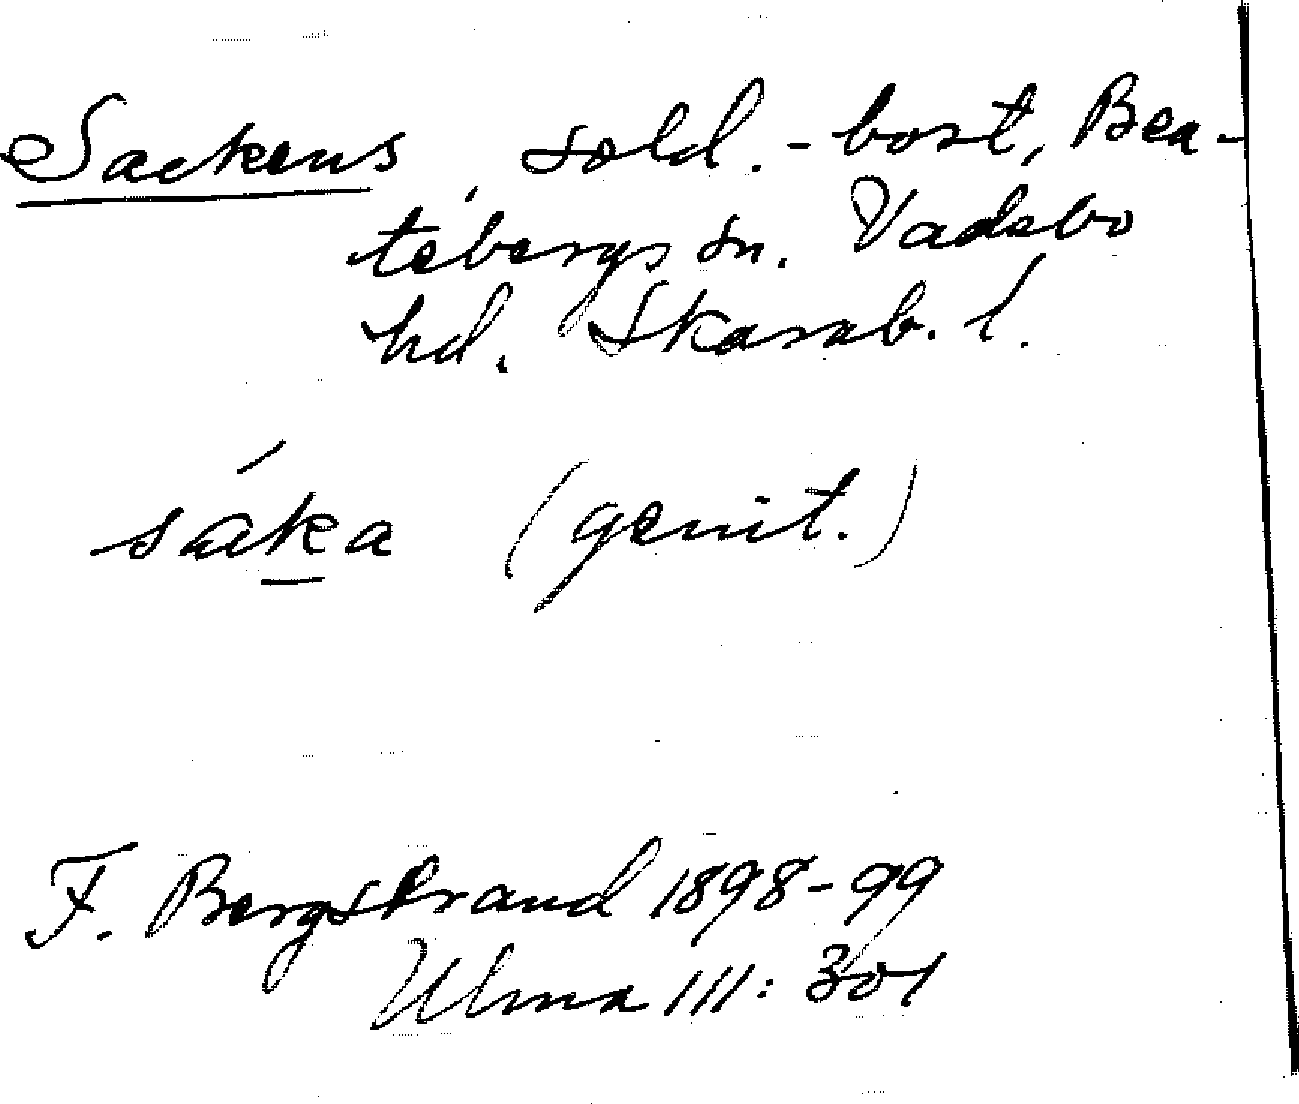 Sackens, sold.-bost, Bea-
tebergs sn. Vadsbo
hd. Skarab. l.
sáka (genit.)
F. Bergstrand 1898-99
Ulma III: 301